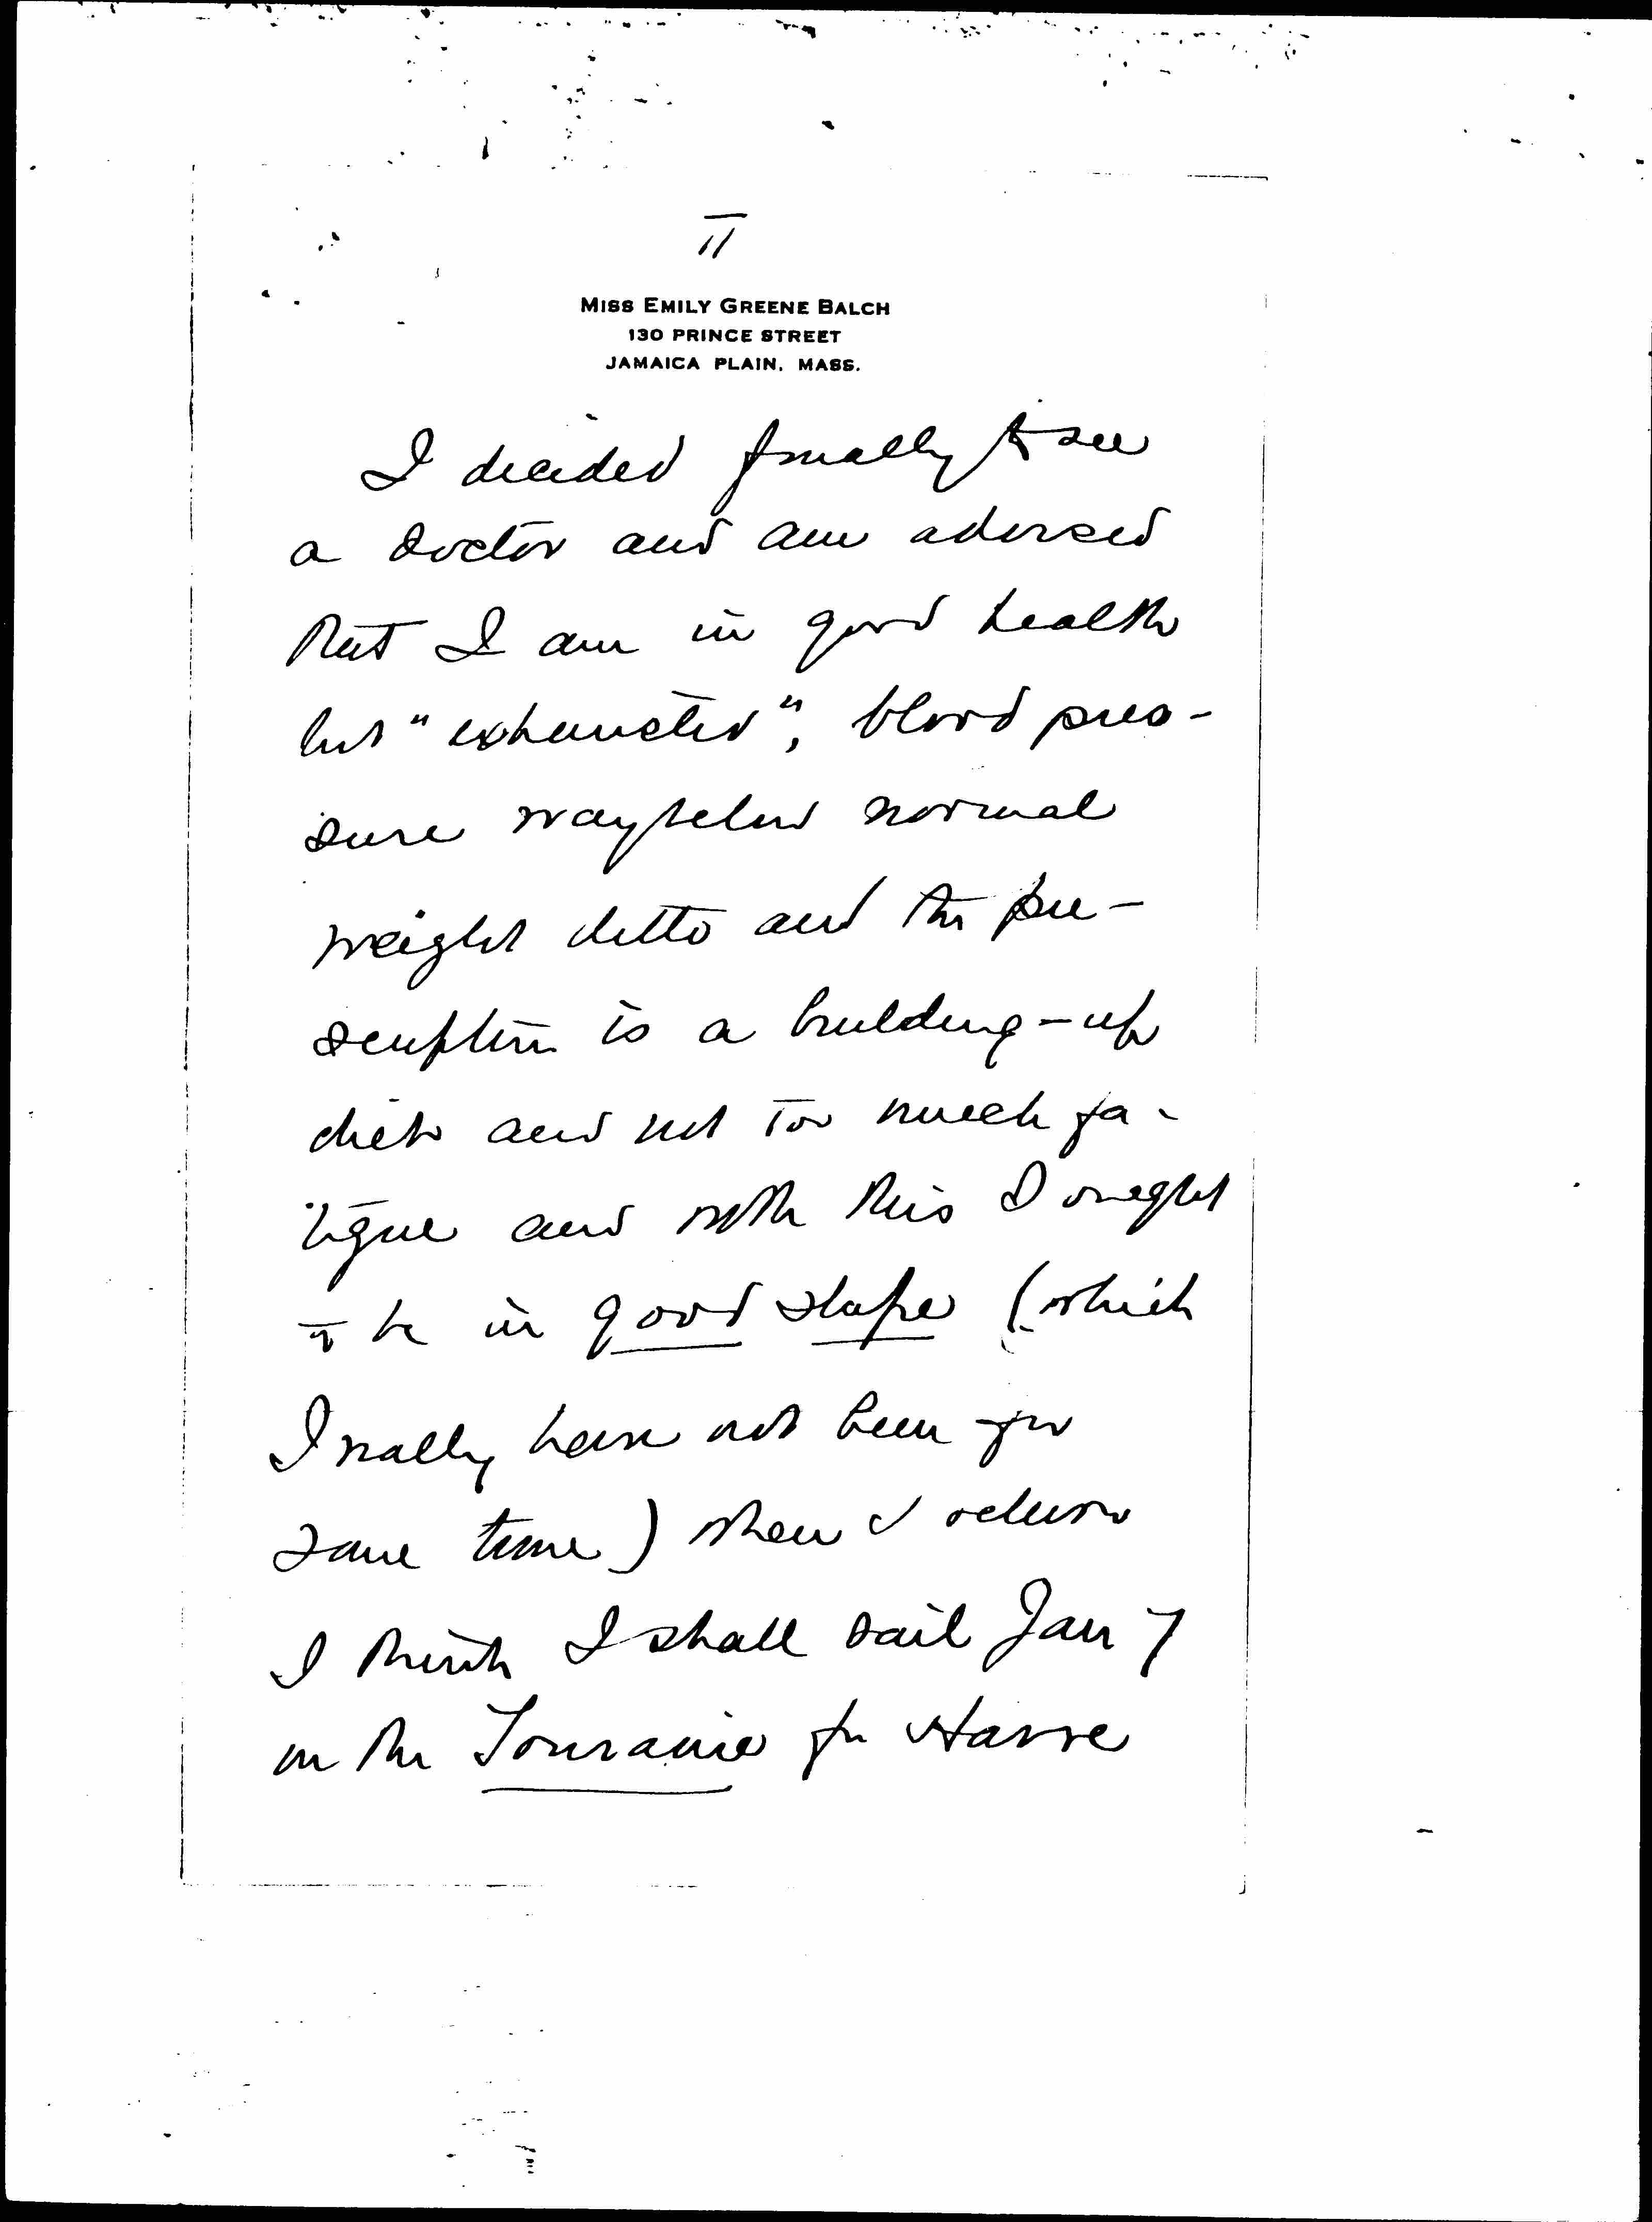 II
MISS EMILY GREENE BALCH
130 PRINCE STREET
JAMAICA PLAIN, MASS.
I decided finally to see
a doctor and am advised
that I am in good health
but "exhausted", blood pres-
sure way below normal
weight ditto and the pre-
scription is a building-up
diet and not too much fa-
tigue and with this I ought
to be in good shape (which
I really have not been for
some time) when I return
I think I shall sail Jan 7
on the Touraine for Havre